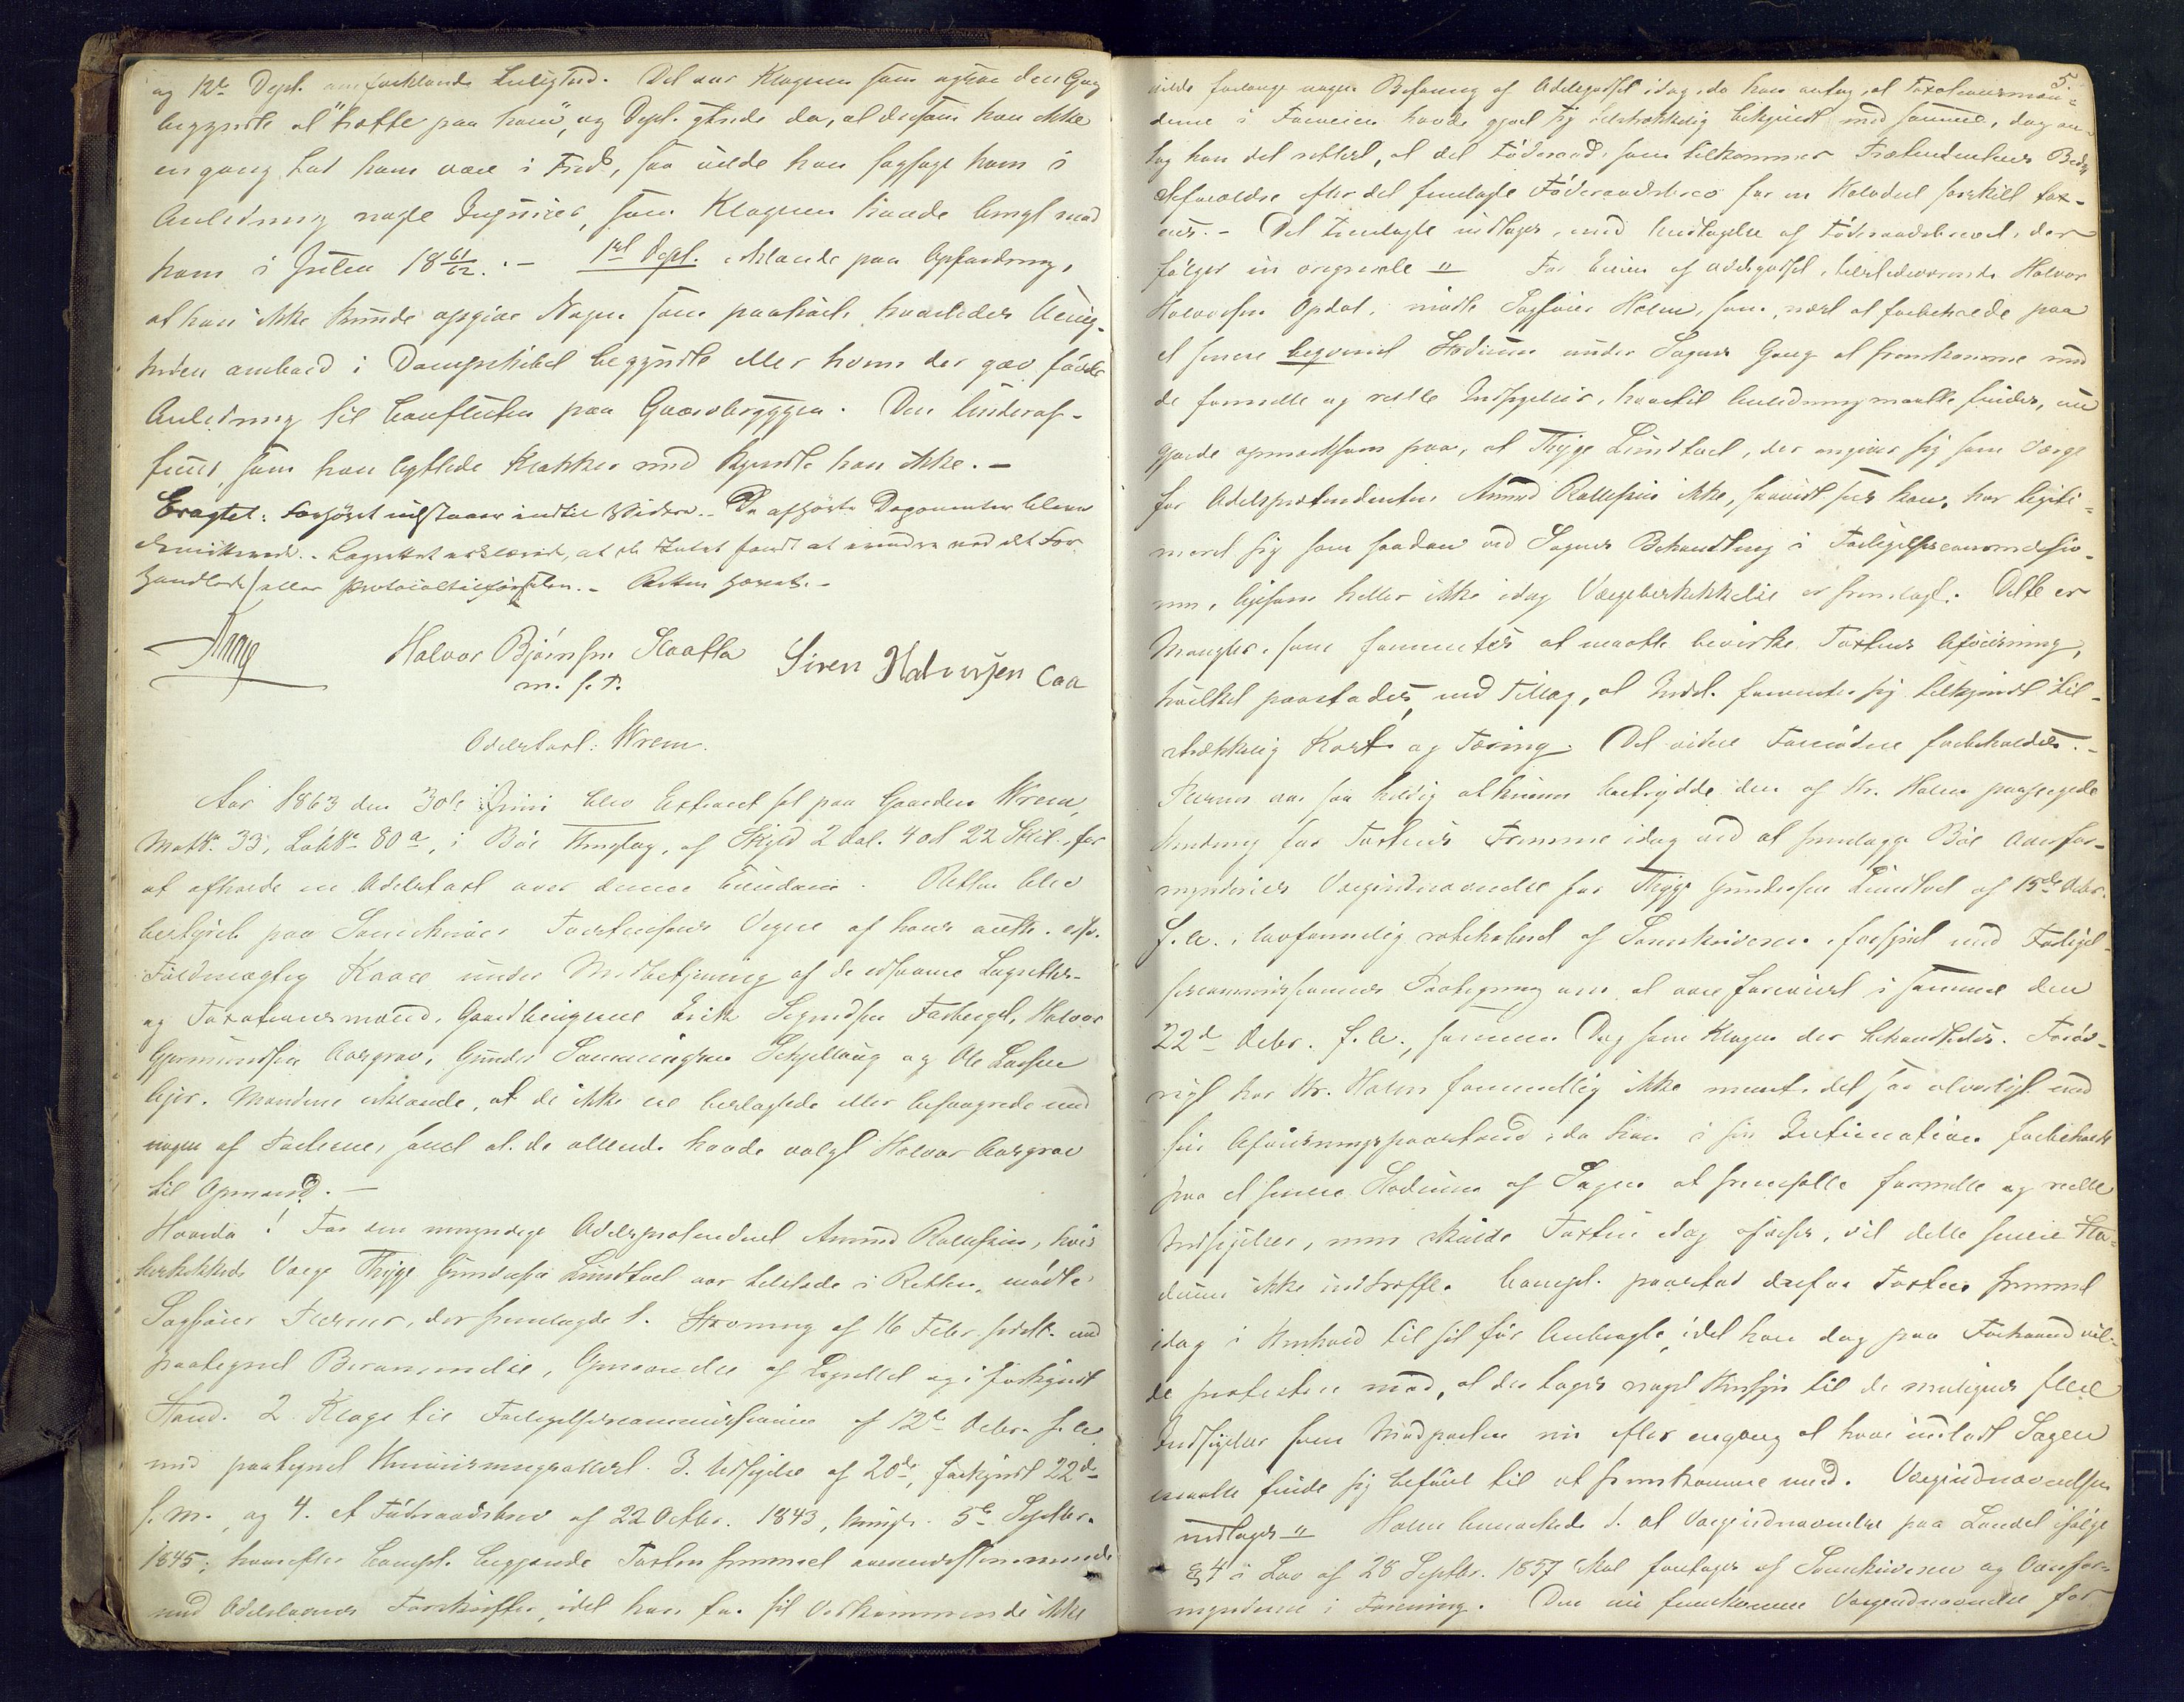 og 12te Depl. omforklarede Leilighed. Det var Klageren som ogsaa den Gang
begyndte at "koffe paa ham", og Depl. ytrede da, at dersom han ikke
engang lod ham være i Fred, saa vilde han sagsøge ham i
Anledning nogle Injurier, som Klageren havde brugt mod
ham i Julen 18 61/62. - 1ste Depl. erklærede paa Opfordring,
at han ikke kunde opgive Nogen som paahørte hvorledes Uenig-
heden ombord i Dampskibet begyndte eller hvem der gav første
Anledning til Conflicten paa Qværnbryggen. Den Underof-
ficeer, som han løftede Krakken med kjendte han ikke. -
Eragtet: Forhøret udstaaer indtil Videre. - De afhørte Deponenter bleve
demitterede. - Lagrettet erklærede, at de Intet fandt at erindre ved det For-
handlede eller Protocoltilførselen. - Retten hævet. -
Halvor Bjørnsen Kaasa Siren Halvorsen Caa
m. f. P.
Odelstaxt: Wrem.
Aar 1863 den 30te Juni blev Extraret sat paa Gaarden Wrem,
Matr. No 33, Løb No 80a, i Bøe Thinglag, af Skyld 2 Dal. 4 ort 22 Skil., for
at afholde en Odelstaxt over denne Eiendom. Retten blev
bestyret paa Sorenskriver Vegne af hans auth. edsv.
Fuldmægtig Kaare under Medbetjening af de edsvorne Lagrettes-
og Taxationsmænd, Gaardbrugerne Erik Sigurdsen Forberget, Halvor
Gjermundsen Aasgrav, Gunder og Ole Larsen
Mændene erklærede, at de ikke ere beslægtede eller besvogrede med
nogen af Parterne, samt at de allerede havde valgt Halvor Aasgrav
til Opmand. -
Hvorda! For den umyndige Odelsprætendent Amund Rollefsen, hvis
beskikkede Værge Thyge Gundersen Lindtvet var tilstede i Retten, mødte
Sagfører der fremlagde 1. Stævning af 16 Febr. sidstl. med
paategnet Berammelse, Opnævnelse af Lagrettet og i forkyndt
Stand. 2. Klage til Forligelsescommissionen af 12te Debr. f. A.
med paategnet Henviisningsattest. 3. Udsigelse af 20de, forkyndt 22de
s. M., og 4. et Føderaadsbrev af 22 Octbr. 1843, thingl. 5te Septbr.
1845; hvorefter Compt. begjærede Taxten fremmet overensstemmende
med Odelslovens Forskrifter, idet han for sit Vedkommende ikke
5.
vilde forlange nogen Befaring af Odelsgodset idag, da han antog, at Taxationsmæn-
dene i Forveien havde gjort sig tilstrækkelig bekjendt med samme, dog an-
tog han det rettest, at det Føderaad, som tilkommer Prætendentens Beds-
teforældre efter det fremlagte Føderaadsbrev for en Halvdeel særskilt tax-
eres. - Det Fremlagte indtages, med Undtagelse af Føderaadsbrevet, der
følger in originale " For Eieren af Odelsgodset, tilstedeværende Halvor
Halvorsen Opdal, mødte Sagfører Holm, som, næst at forbeholde paa
et senere beqvemt Stadium under Sagens Gang at fremkomme med
de formelle og reelle Indsigelser, hvortil Anledning maatte findes, nu
gjorde opmærksom paa, at Thyge Lindtvet, der angiver sig som Værge
for Odelsprætendenten Amund Rollefsen ikke, saavidt sees kan, har legiti-
meret sig som saadan ved Sagens Behandling i Forligelsescommissio-
nen, ligesom heller ikke idag Værgebeskikkelse er fremlagt. Dette er
Mangler, som formentes at maatte bevirke Taxtens Afviisning,
hvilket paastodes, med Tillæg, at Indst. formentes sig tilkjendt til-
strækkelig Kost og Tæring. Det videre Fornødne forbeholdtes. -
var saa heldig at kunne den af Hr. Holm paapegede
Hindring for Taxtens Fremme idag ved at fremlægge Bøe Overfor-
mynderies Værgeudnævnelse for Thyge Gundersen Lindtvet af 15de Debr.
f. A., lovformelig ratihaberet af Sorenskriveren, forsynet med Forligel-
sescommissionens Paategning om at være foreviist i samme den
22de Debr. f. A., samme Dag som Klagen der behandledes. Forøv-
rigt har Hr. Holm formentlig ikke meent det saa alvorligt med
sin Afviisningspaastand, da han i sin Intimation forbeholdt
paa et senere Stadium af Sagen at fremsætte formelle og reelle
Indsigelser, men skulde Taxten idag afvises, vil dette senere Sta-
dium ikke indtræffe. Compt. paastod derfor Taxten fremmet
idag i Henhold til sit før Anbragte, idet han dog paa Forhaand vil-
de protestere mod, at der tages noget Hensyn til de muligens flere
Indsigelser som Modparten nu efter engang at have indladt Sagen
maatte finde sig beføiet til at fremkomme med. Værgeudnævnelsen
indtages " Holm bemærkede 1. at Værgeudnævnelse paa Landet ifølge
§ 4 i Lov af 28 Septbr. 1857 skal foretages af Sorenskriveren og Overfor-
mynderne i Forening. Den nu fremkomne Værgeudnævnelse for